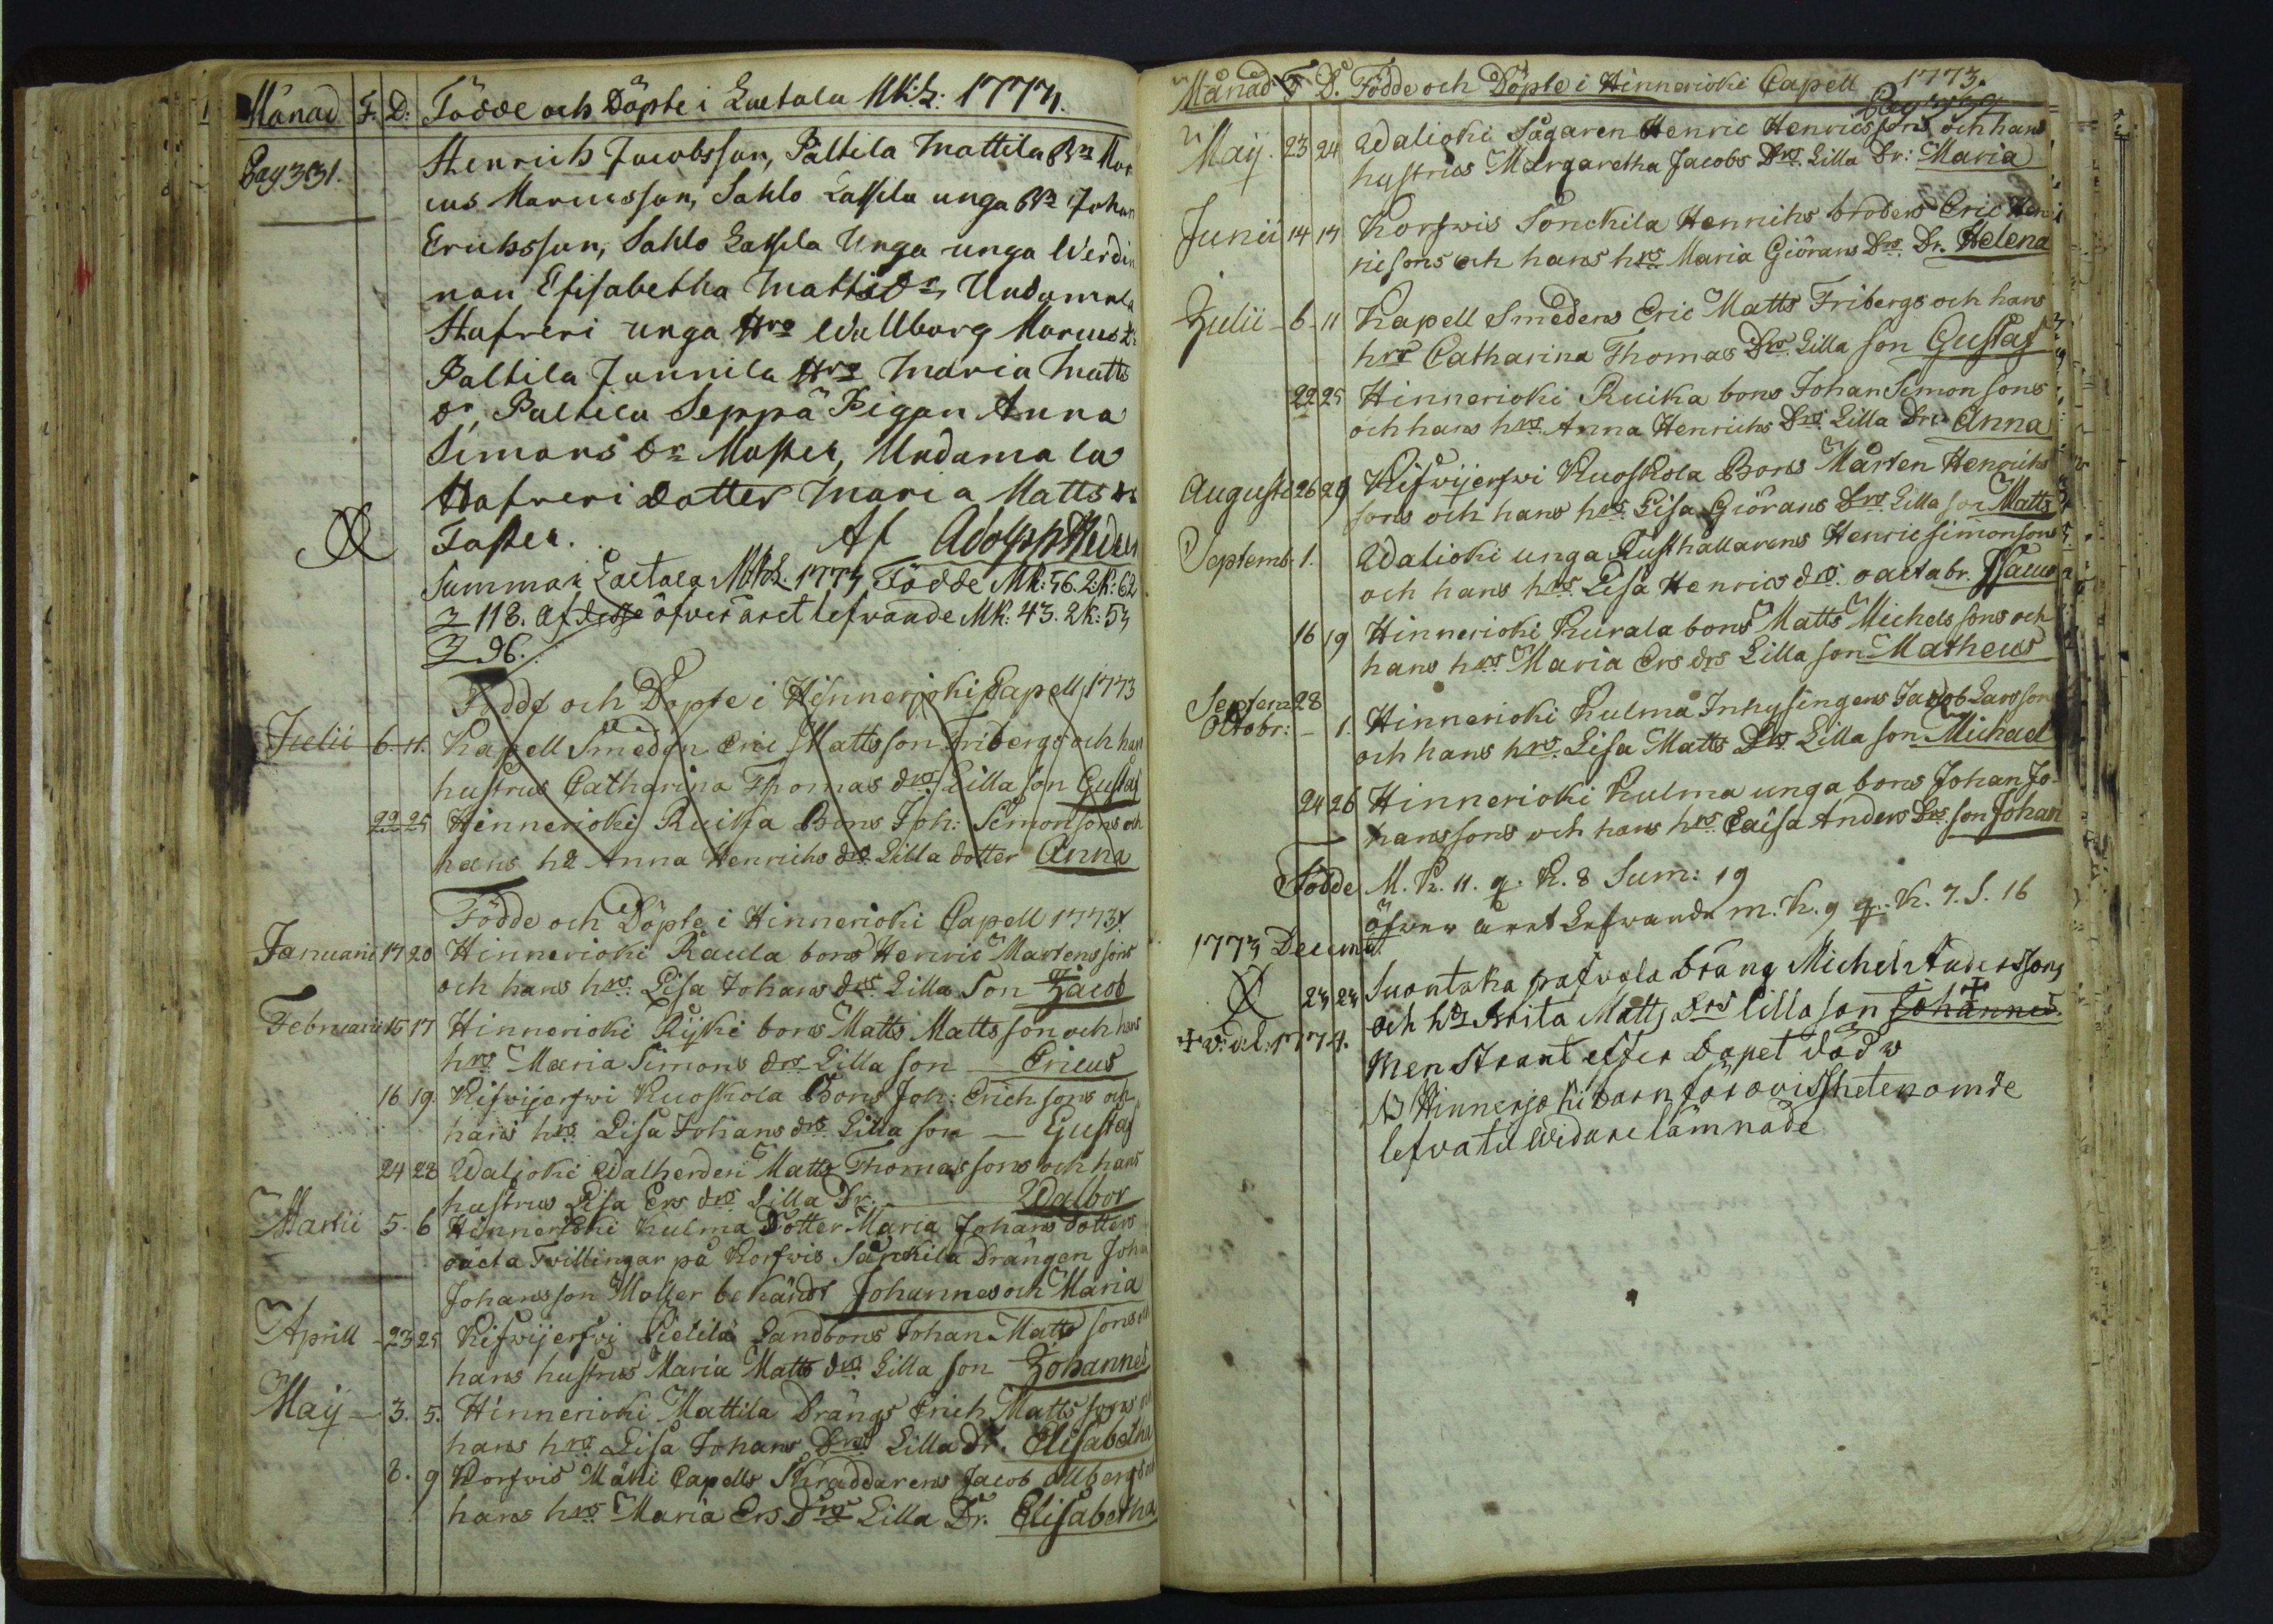 Månad F. D: Födde och Döpte i Laetala Mk:L: 1773.
Pag 331. Henrich Jacobsson, Paltila Mattila Bn Mar
cus Marcusson, Sahlo Lassila unga Bn Johan
Erichsson, Sahlo Lassila Unga unga Werdin
nan Elisabetha Matts Dr, Undamala
Hafreri unga Hro Wallborg Marcus Dr
Paltila Junnila Hro Maria Matts
dr, Paltila Seppä Pigan Anna
Simons dr Moster, Undamala
Hafreri dotter Maria Matts dr
Faster. Af Adolph
Summa i Laetala Mk:L. 1773 Födde Mk: 56. Qk: 62
118. af desse öfver året lefwande Mk: 43. Qk: 53
96.
Födde och Döpte i Hinnerjoki Capell 1773
Julii 6. 11. Kapell Smeden Eric Mattsson Fribergs och hans
hustrus Catharina Thomas drs Lilla son Gustaf
22 25 Hinnerioki Ruika Bons Joh: Simonsons och
hans hs Anna Henrichs drs Lilla dotter Anna
Födde och Döpte i Hinnerioki Capell 1773.
Januarii 17 20 Hinnerioki Raula bons Henric Martenssons
och hans hrs Lisa Johans drs Lilla Son Jacob
Februarii 15 17 Hinnerioki Ryki bons Matts Mattsson och hans
hrs Maria Simons drs Lilla son Ericus
16 19. Kifwijerfwi Kuoskola Bons Joh: Erichsons och
hans hrs Lisa Johans drs Lilla son Gustaf
24 28 Waljoki Walherden Matts Thomassons och hans
hustrus Lisa Ers drs Lilla Dr. Walbor
Martii 5 6 Hinnerioki Kulma Dotter Maria Johans dotters
oäcta Twillingar på Korfwis Sanckila Drängen Joha
Johansson Moller bekändt Johannes och Maria
Aprill 23 25 Kifwijerfwi Pietilä Landbons Johan Matts sons
hans hustrus Maria Matts drs Lilla son Johannes
Maij 3. 5. Hinnerioki Mattila Drängs Erich Matts sons
hans hrs Lisa Johans Drs Lilla Dr. Elisabetha
8. 9 Korfwis Mäki Capells Skraddarens Jacob Allbergs
hans hrs Maria Ers Drs Lilla Dr. Elisabetha
Månad F D. Födde och Döpte i Hinnerioki Capell 1773.
Maij. 23 24 Walioki Sågaren Henric Henricssons och hans
hustrus Margaretha Jacobs Drs Lilla Dr: Maria
Junii 14 17 Korfwis Sonckila Henrichs broders Eric Hen
ricsons och hans hrs Maria Giörans Drs Dr. Helena
Julii 6 11 Kapell Smedens Eric Matts Fribergs och hans
hrs Catharina Thomas Drs Lilla son Gustaf
22 25 Hinnerioki Ruika bons Johan Simon sons
och hans hrs Anna Henrichs Drs Lilla Dr: Anna
Augusti 26 29 Kifwijerfwi Kuoskola Bons Mårten Henrichs
sons och hans hrs Lisa Giörans Drs Lilla son Matts
Septemb: 1. Walioki unga Rusthållarens Henric simonsons
och hans hrs Lisa Henrics drs oäcta br. Isacus
16 19 Hinnerioki Kurala bons Matts Michels sons och
hans hrs Maria Ers drs Lilla son Matheus
Septem 28
Octobr: 1. Hinnerioki Kulma Inhysingens Jacob Larsson
och hans hrs Lisa Matts Drs Lilla son Michael
24 26 Hinnerioki Kulma unga bons Johan Jo-
hanssons och hans hrs Caisa Anders Drs son Johan
Födde M. K. 11. q. K. 8 Sum: 19
öfwer året Lefwande m. K. 9 q. K. 7. S. 16
1773 Decemb.
23 23 Suontaka prästgla dräng Michel Anderssons
och hs Brita Matts Drs lilla son Johannes.
1774. men strant efter Döpet död
NB Hinnerjoki barn för ovissheten om de
lefvat widare lämnade